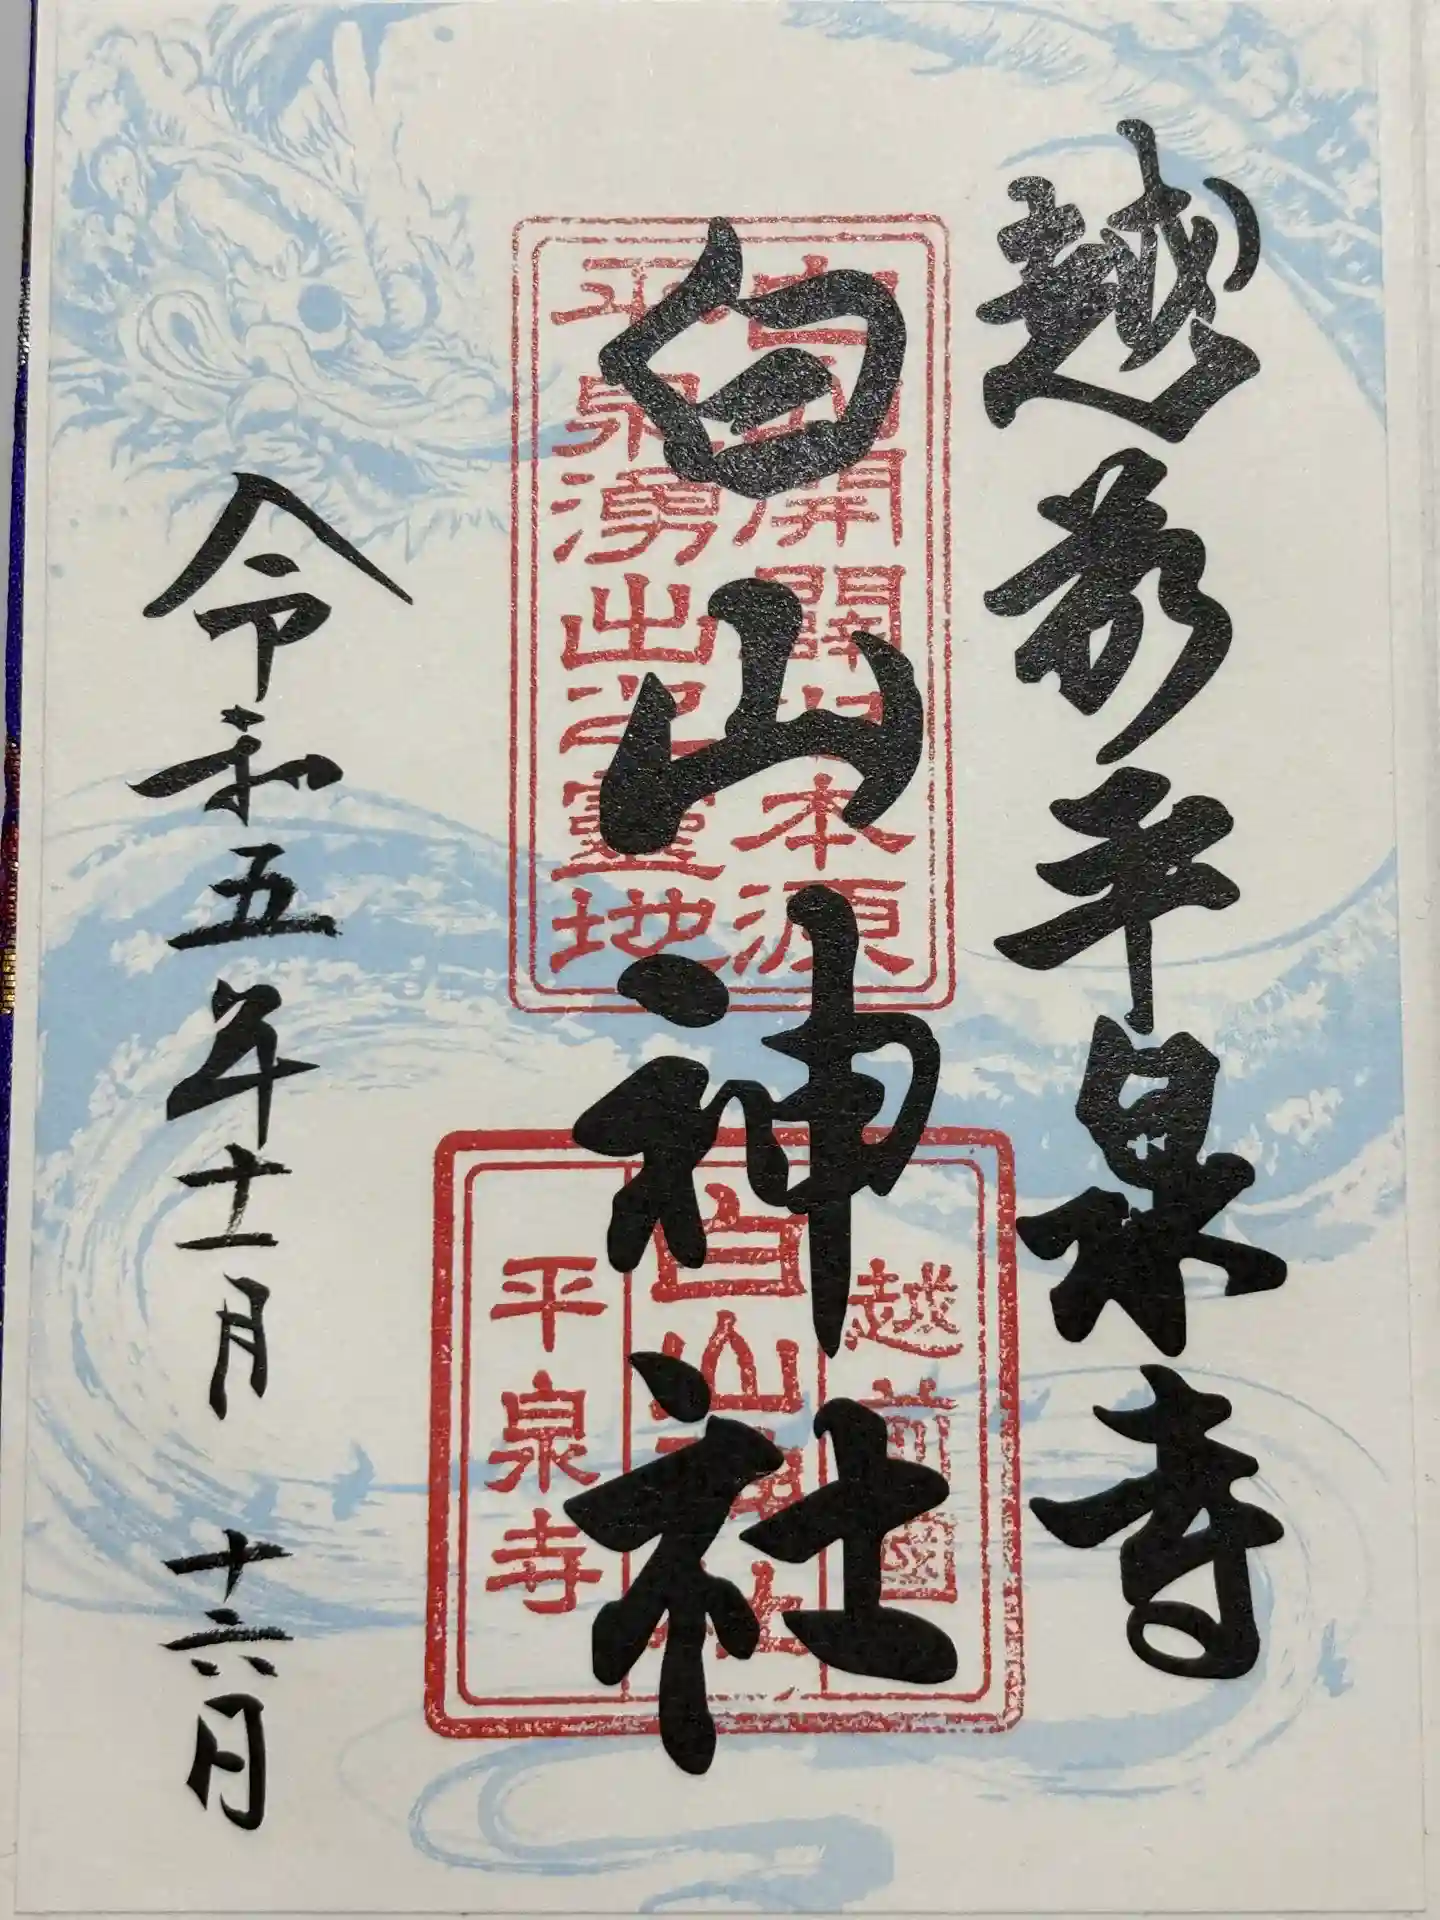 越前平泉寺
白山神社
令和五年十一月 十六日
白山開闢之本源
平泉湧出之靈地
越前國
白山神社
平泉寺